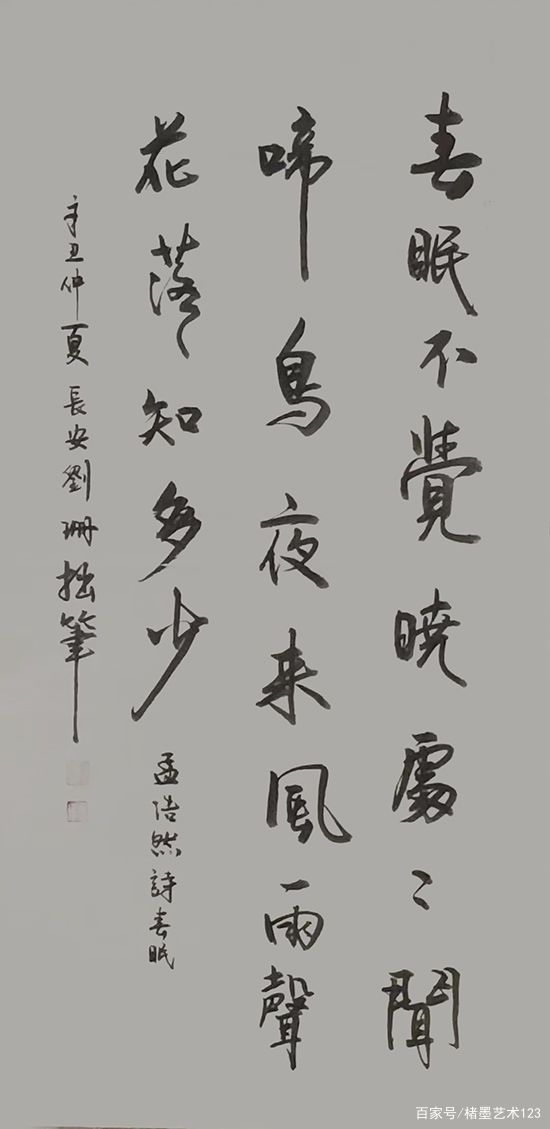 春眠不覺曉處〻聞
啼鳥夜来風雨聲
花落知多少
孟浩然詩春眠
辛丑仲夏長安劉珊拙筆
百家号/楮墨艺术123